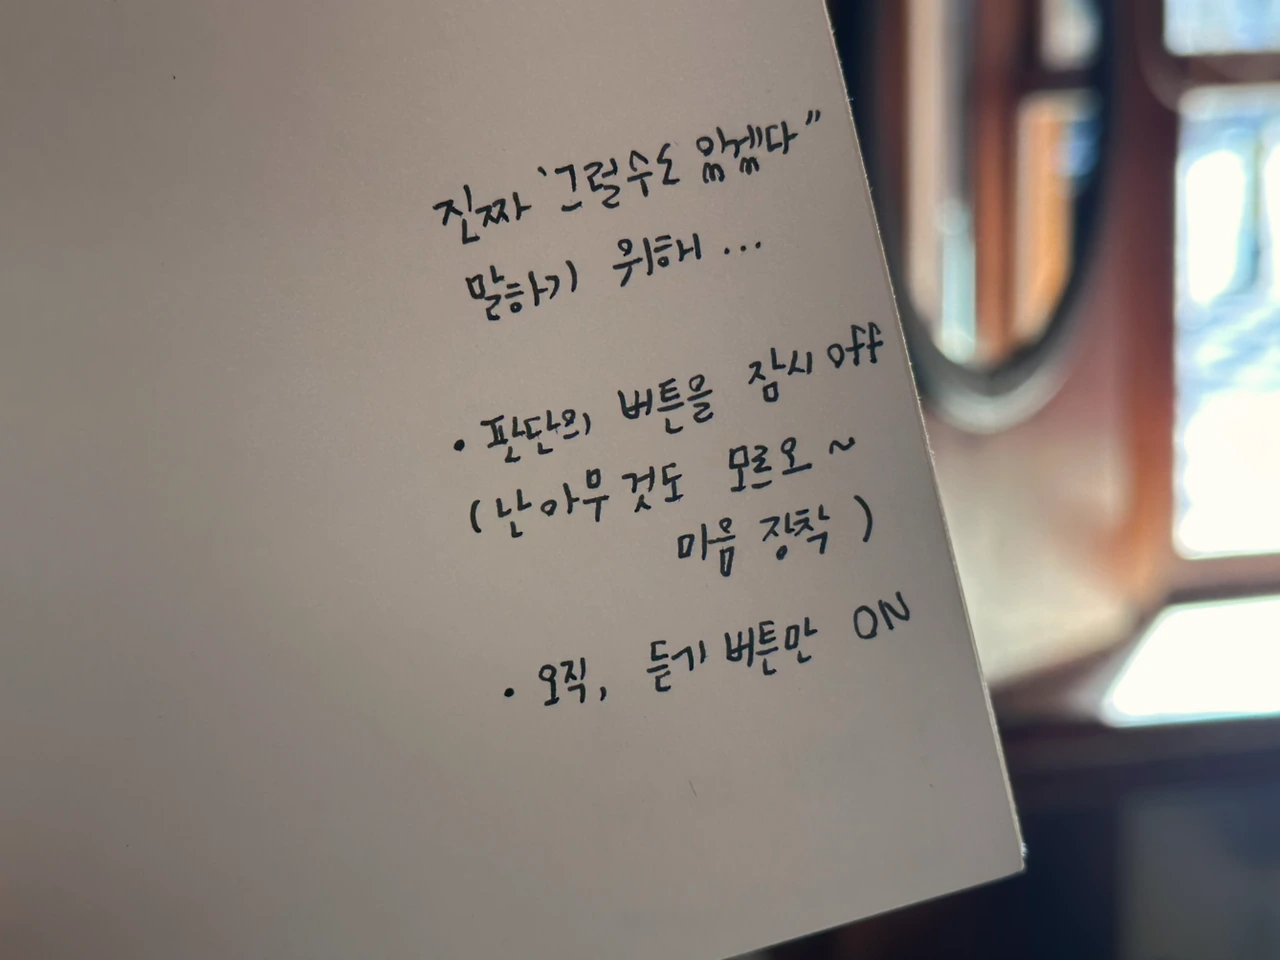 진짜 '그럴수도 있겠다"
말하기 위해 ...
• 판단의 버튼을 잠시 off
(난 아무것도 모르오 ~
마음 장착)
• 오직, 듣기 버튼만 ON